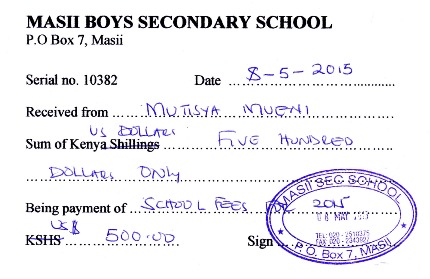 MASII BOYS SECONDARY SCHOOL
P.O Box 7, Masii
Serial no. 10382 Date 8-5-2015
Received from MUTISYA MUENI
US DOLLARS
Sum of Kenya Shillings FIVE HUNDRED
DOLLARS ONLY
Being payment of SCHOOL FEES 2015
US$
KSHS 500.00 Sign
MASII SEC SCHOOL
P.O. Box 7, MASII